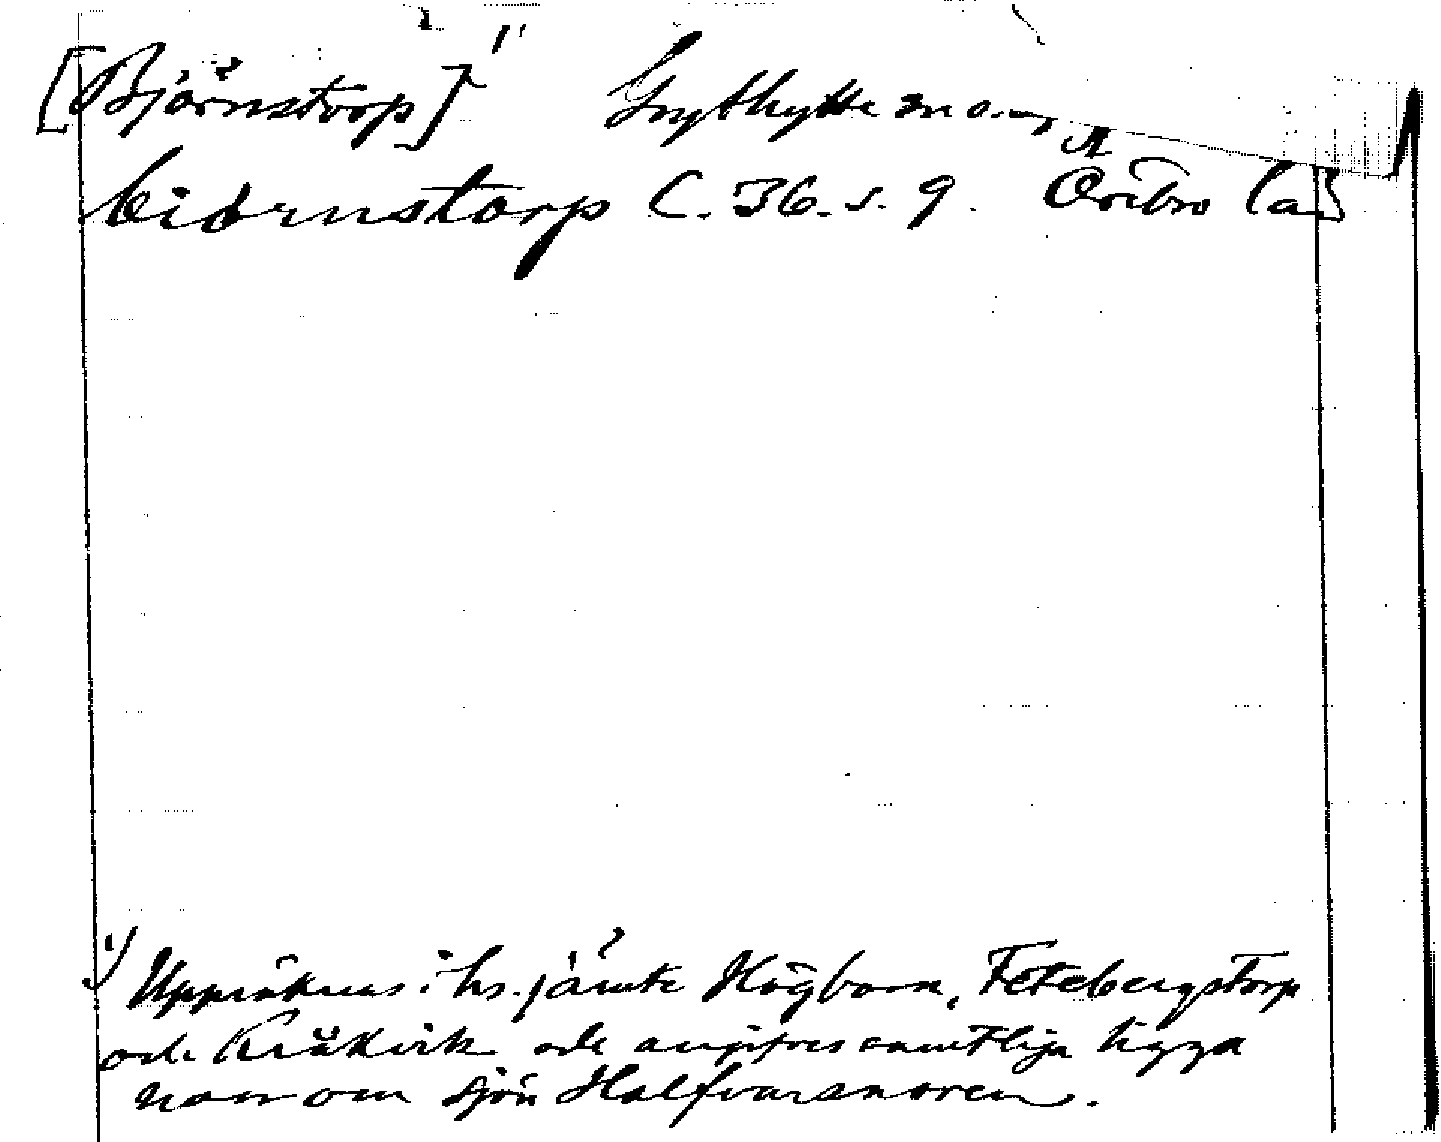 [Björnstorp] 1) Grythytte sn o.
biórnstorp C. 36. s. 9. Örebro lä
1) Uppräknas i hs. jämte Högborn, Fetebergstorp
och Kräkvik och angifves samtliga ligga
norr om sjön Halfvarsnoren.